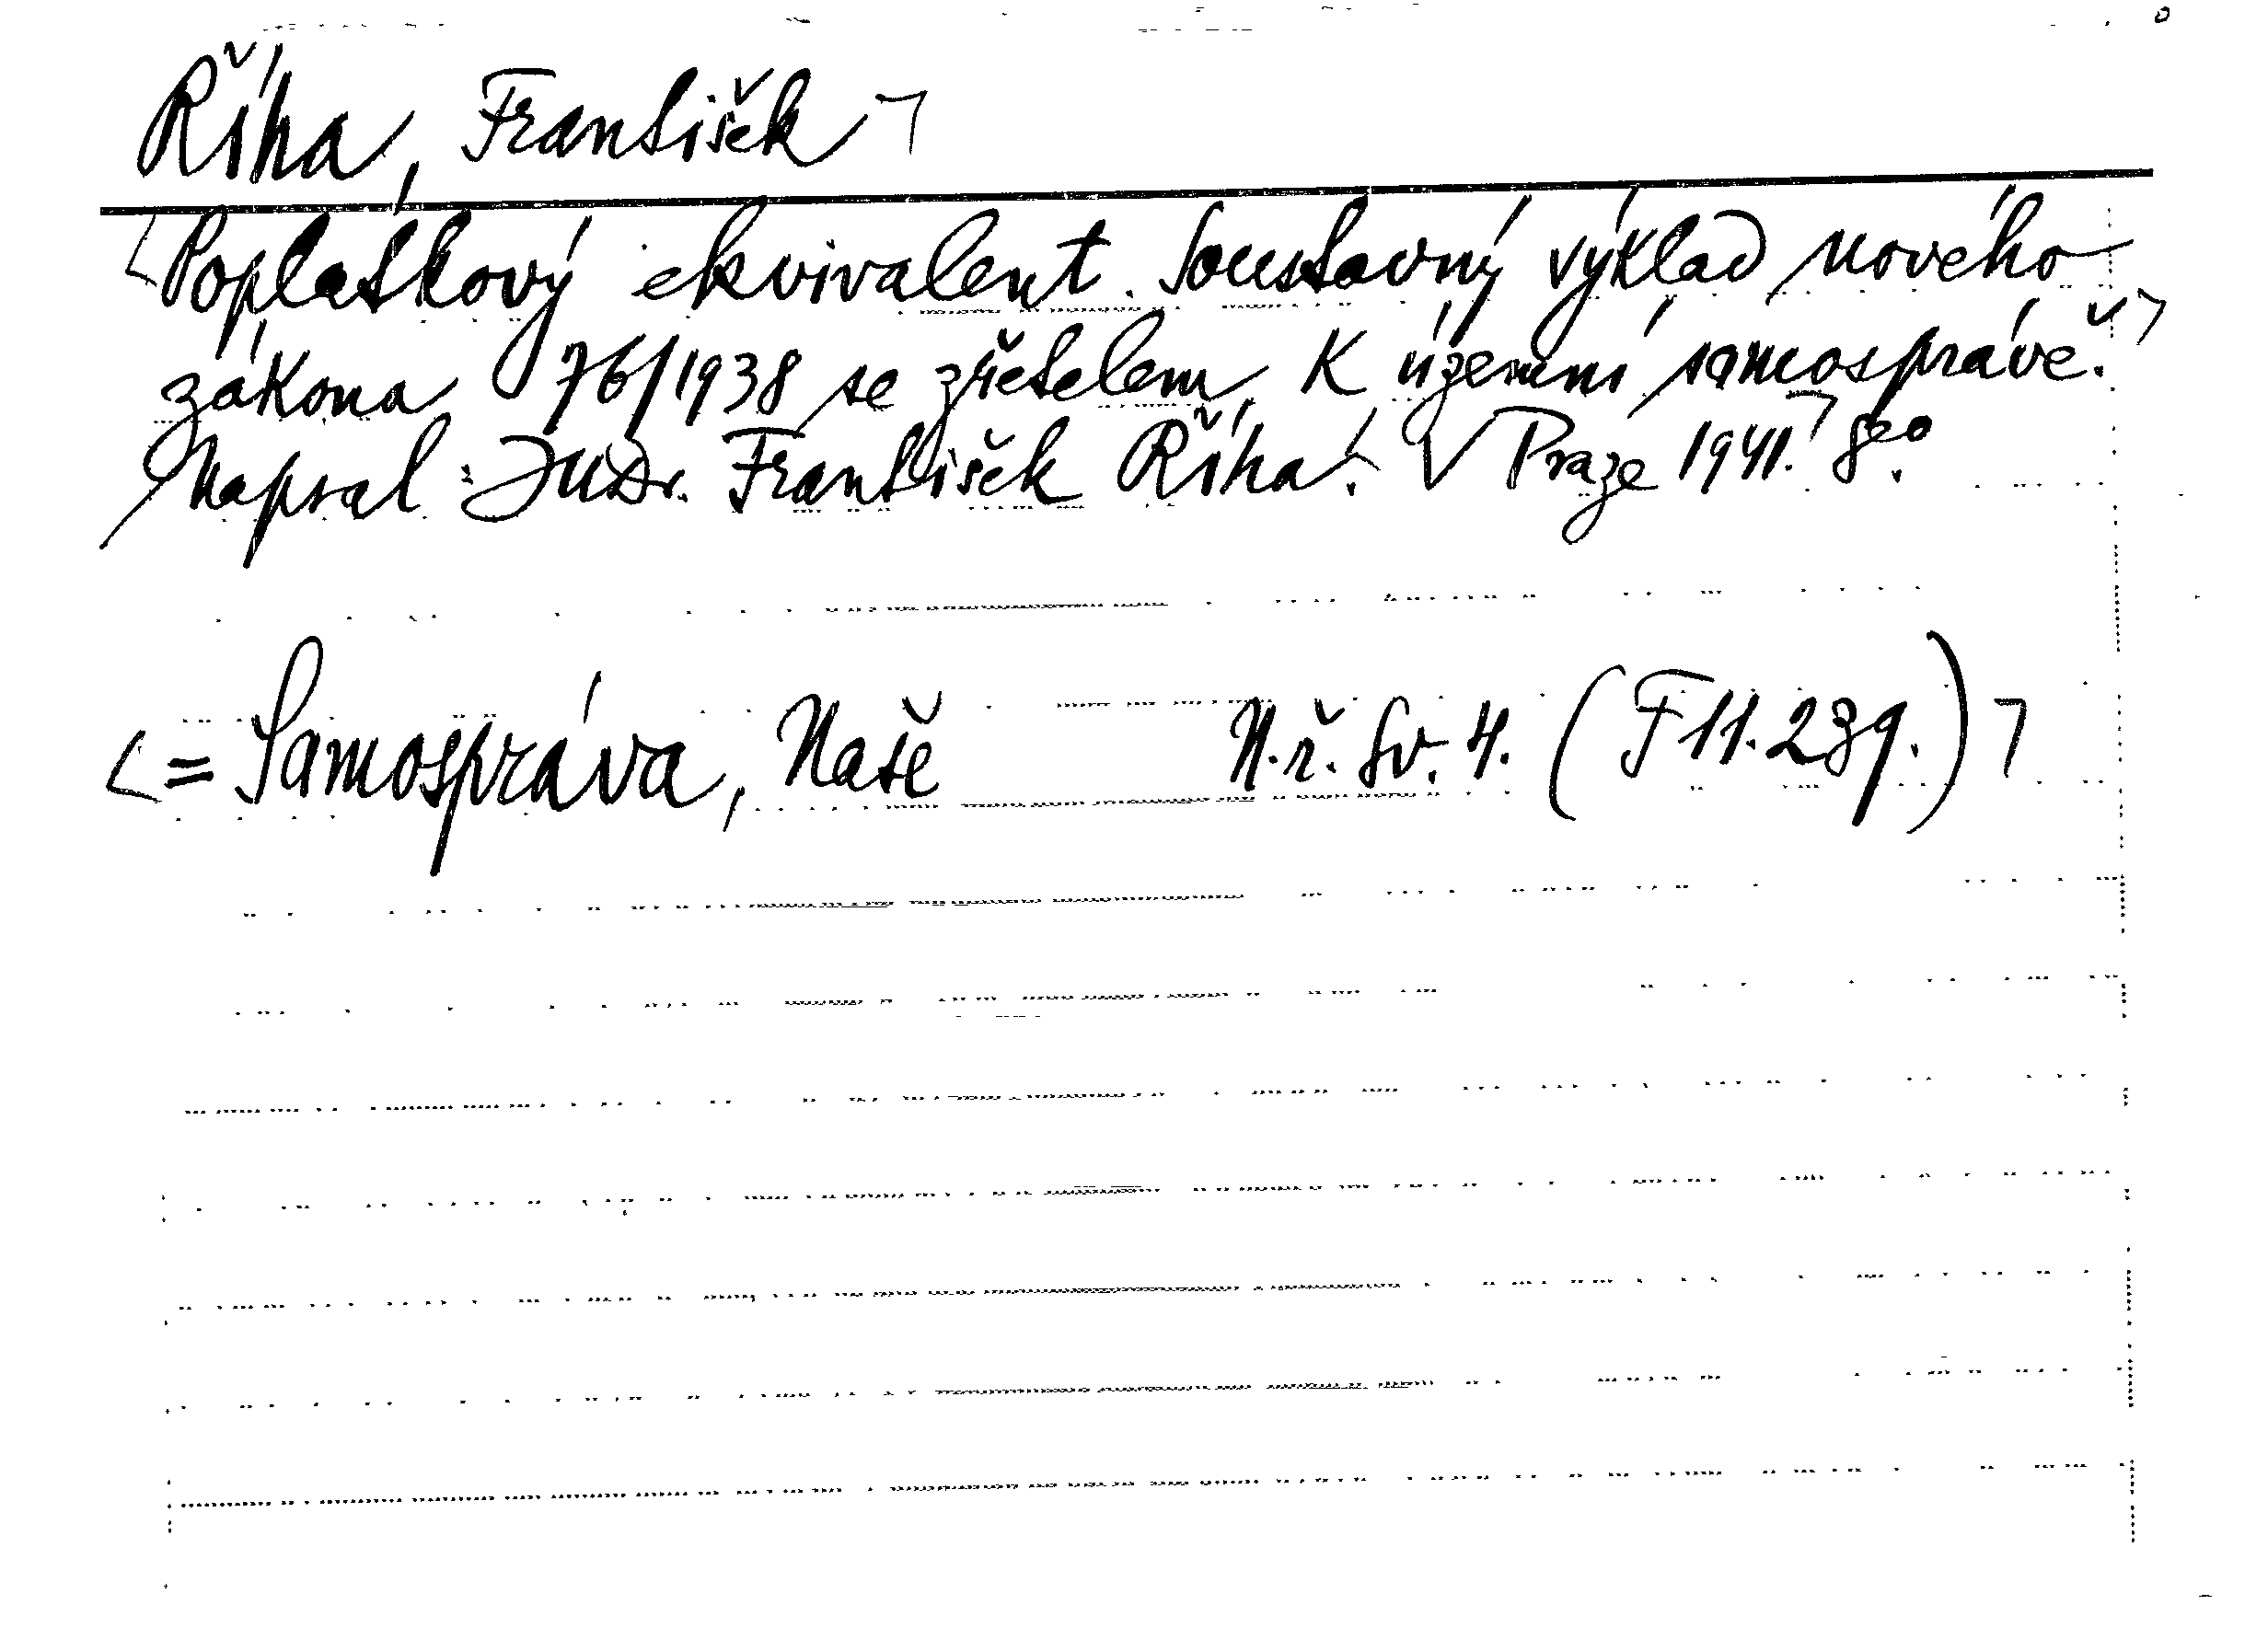 Říha, František ¬
Poplatkový ekvivalent. Soustavný výklad nového
zákona 76/1938 se zřetelem k územní samosprávě.
Napsal: JUDr. František Říha. V Praze 1941. 8°.
= Samospráva, Naše N.ř. Sv. 4. (F 11.239.)